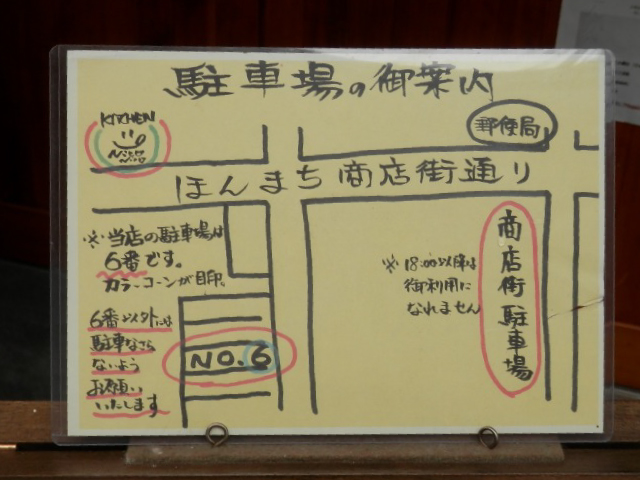 駐車場の御案内
KITCHEN
郵便局
ほんまち商店街通り
※当店の駐車場は
6番です。
カラーコーンが目印。
6番以外には
駐車なさら
ないよう
お願い
いたします
NO.6
※18:00以降は
御利用に
なれません
商店街駐車場